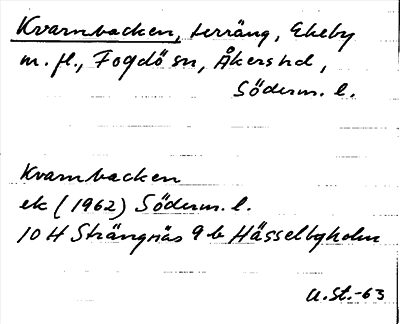 Kvarnbacken, terräng, Ekeby
m. fl., Fogdö sn, Åkers hd,
Söderm. l.
Kvarnbacken
ek (1962) Söderm. l.
10 H Strängnäs 9 b Hässelbyholm
U. St. -63